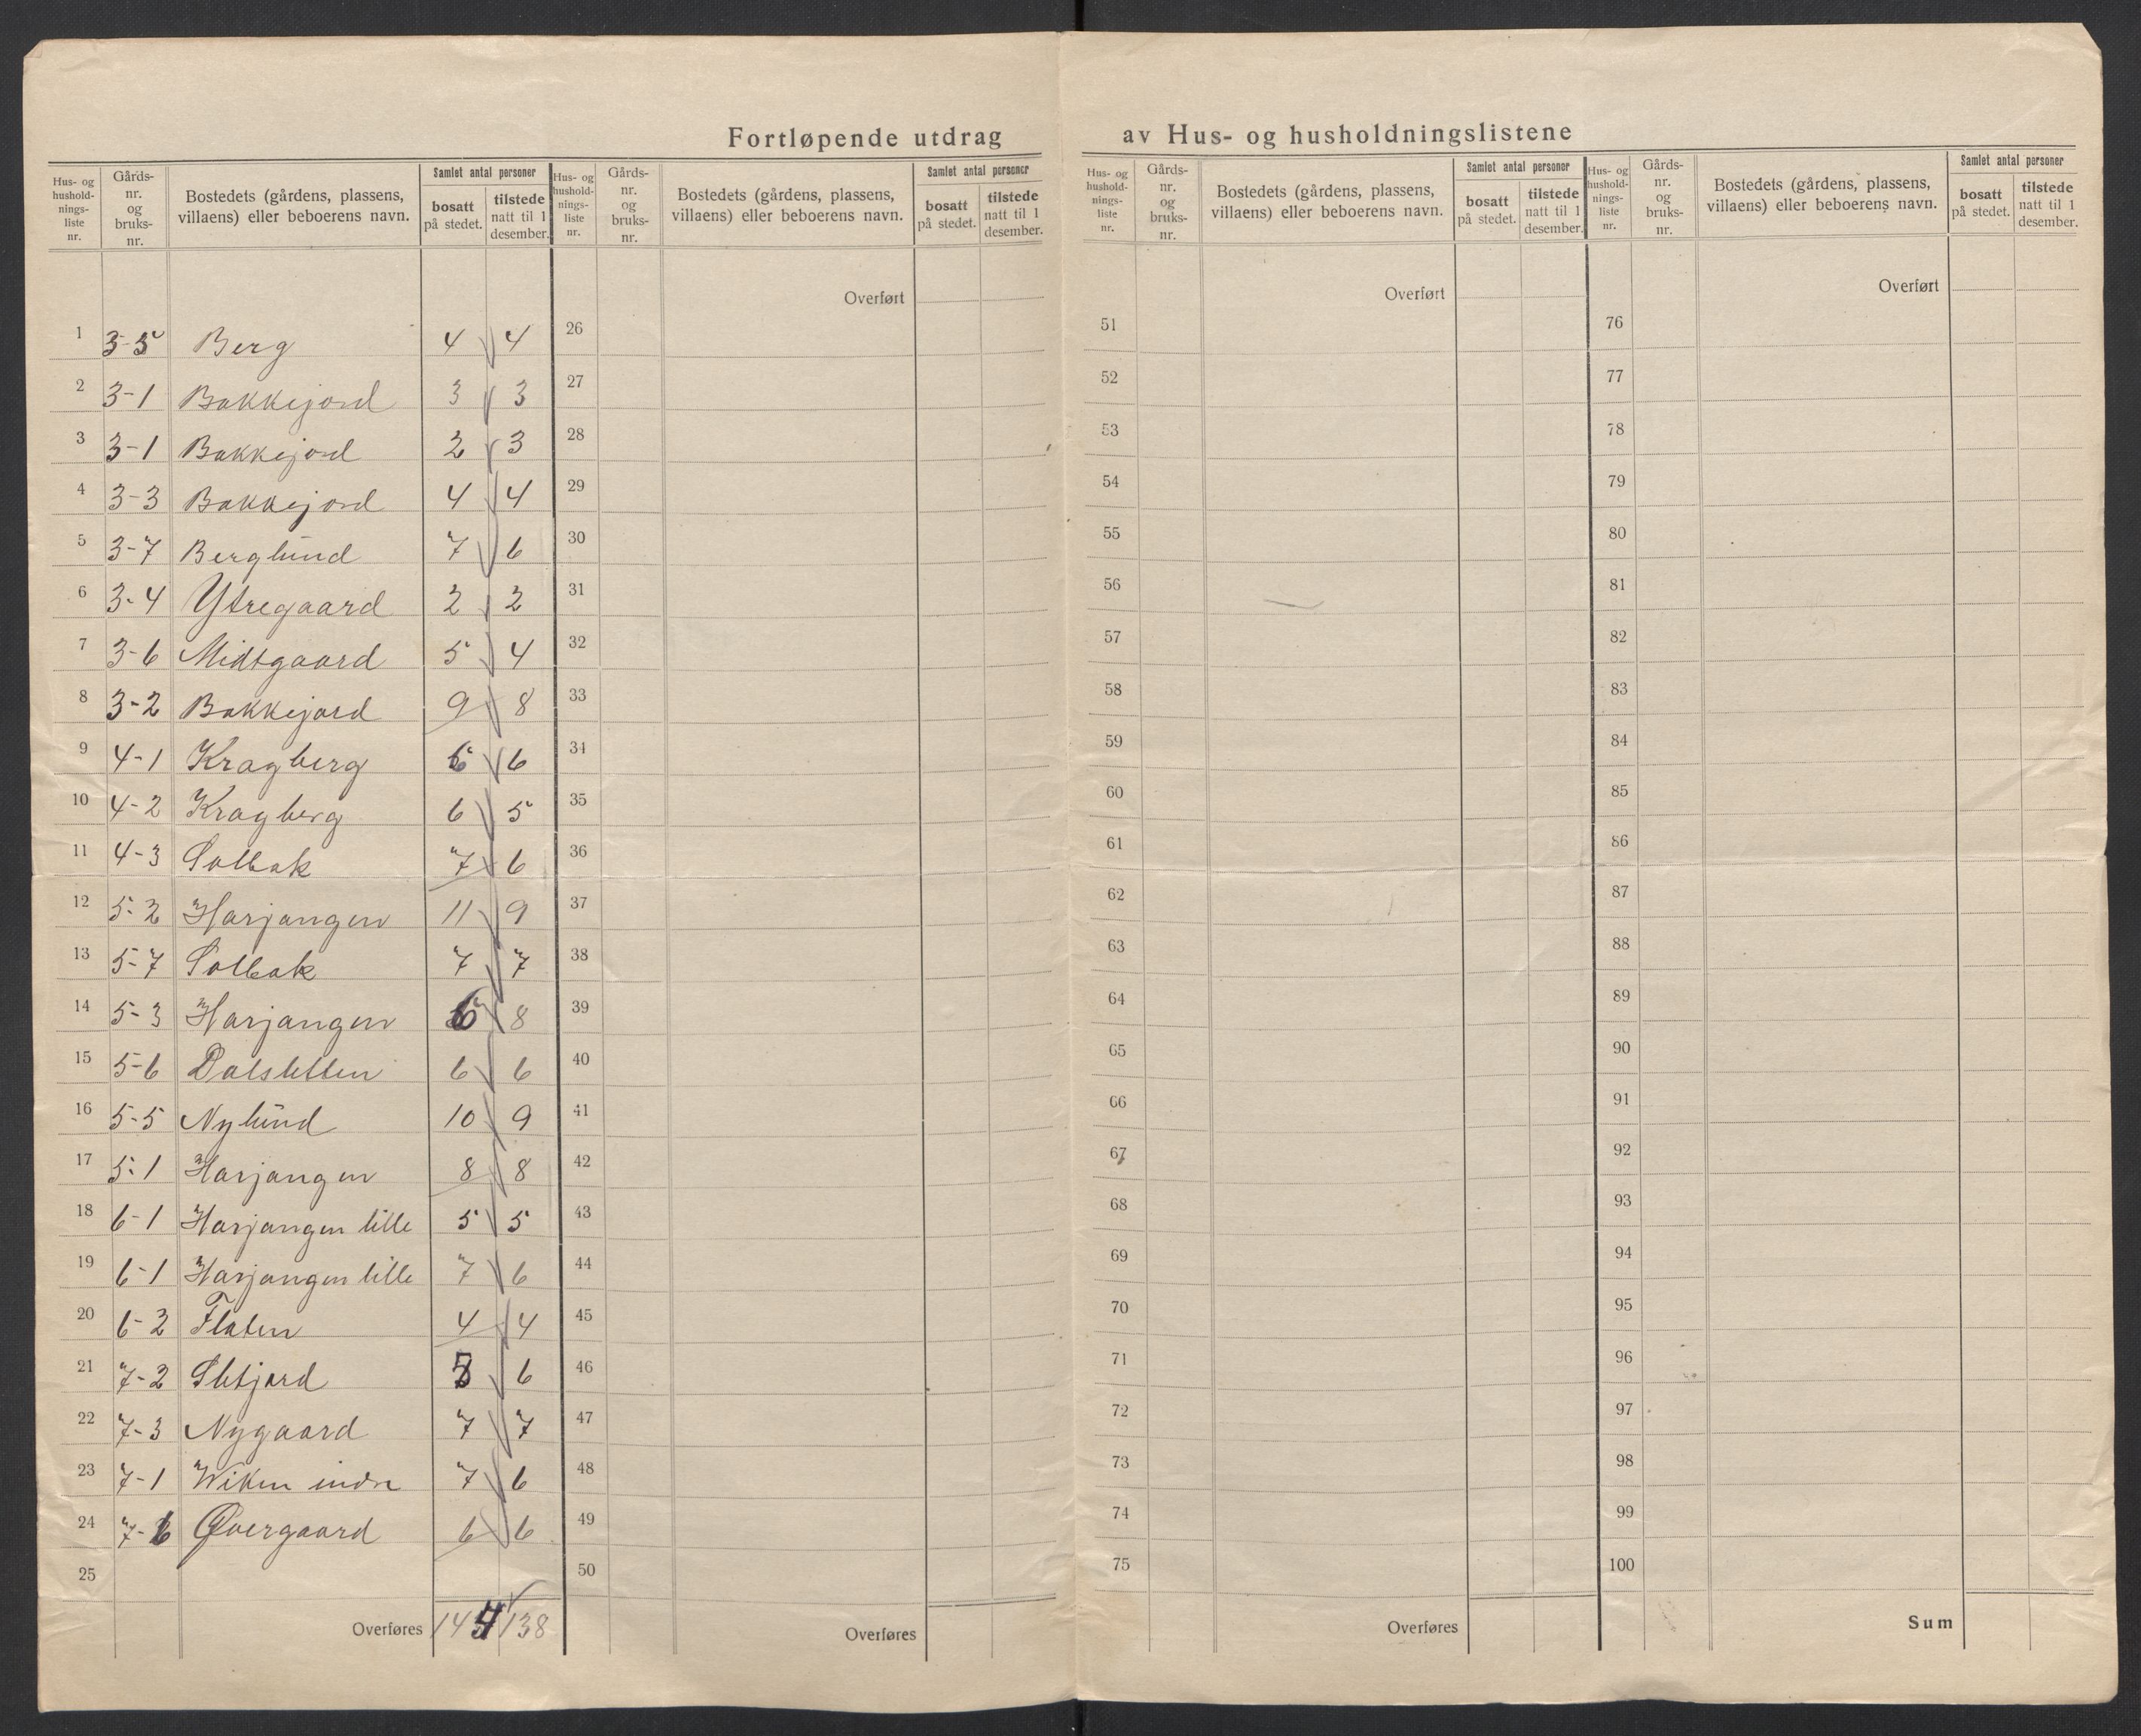 Fortløpende utdrag av Hus- og husholdningslistene
Hus- og husholdnings-liste nr. | Gårds-nr. og bruks-nr. | Bostedets (gårdens, plassens, villaens) eller beboerens navn. | Samlet antal personer | bosatt på stedet. | tilstede natt til 1 desember.
1 3-5 Berg 4 4
2 3-1 Bakkejord 3 3
3 3-1 Bakkejord 2 3
4 3-3 Bakkejord 4 4
5 3-7 Berglund 7 6
6 3-4 Ytregaard 2 2
7 3-6 Midtgaard 5 4
8 3-2 Bakkejord 9 8
9 4-1 Kragberg 6 6
10 4-2 Kragberg 6 5
11 4-3 Solbak 7 6
12 5-2 Harjangen 11 9
13 5-7 Solbak 7 7
14 5-3 Harjangen 8
15 5-6 Dalsletten 6 6
16 5-5 Nylund 10 9
17 5-1 Harjangen 8 8
18 6-1 Harjangen lille 5 5
19 6-1 Harjangen lille 7 6
20 6-2 Flaten 4 4
21 7-2 Sletjord 6
22 7-3 Nygaard 7 7
23 7-1 Wiken indre 7 6
24 7-6 Øvergaard 6 6
25
Overføres 138
Hus- og hushold-nings-liste nr. | Gårds-nr. og bruks-nr. | Bostedets (gårdens, plassens, villaens) eller beboerens navn. | Samlet antal personer | bosatt på stedet. | tilstede natt til 1 desember.
Overført
26
27
28
29
30
31
32
33
34
35
36
37
38
39
40
41
42
43
44
45
46
47
48
49
50
Overføres
Hus- og hushold-nings-liste nr. | Gårds-nr. og bruks-nr. | Bostedets (gårdens, plassens, villaens) eller beboerens navn. | Samlet antal personer | bosatt på stedet. | tilstede natt til 1 desember.
Overført
51
52
53
54
55
56
57
58
59
60
61
62
63
64
65
66
67
68
69
70
71
72
73
74
75
Overføres
Hus- og hushold-nings-liste nr. | Gårds-nr. og bruks-nr. | Bostedets (gårdens, plassens, villaens) eller beboerens navn. | Samlet antal personer | bosatt på stedet. | tilstede natt til 1 desember.
Overført
76
77
78
79
80
81
82
83
84
85
86
87
88
89
90
91
92
93
94
95
96
97
98
99
100
Sum